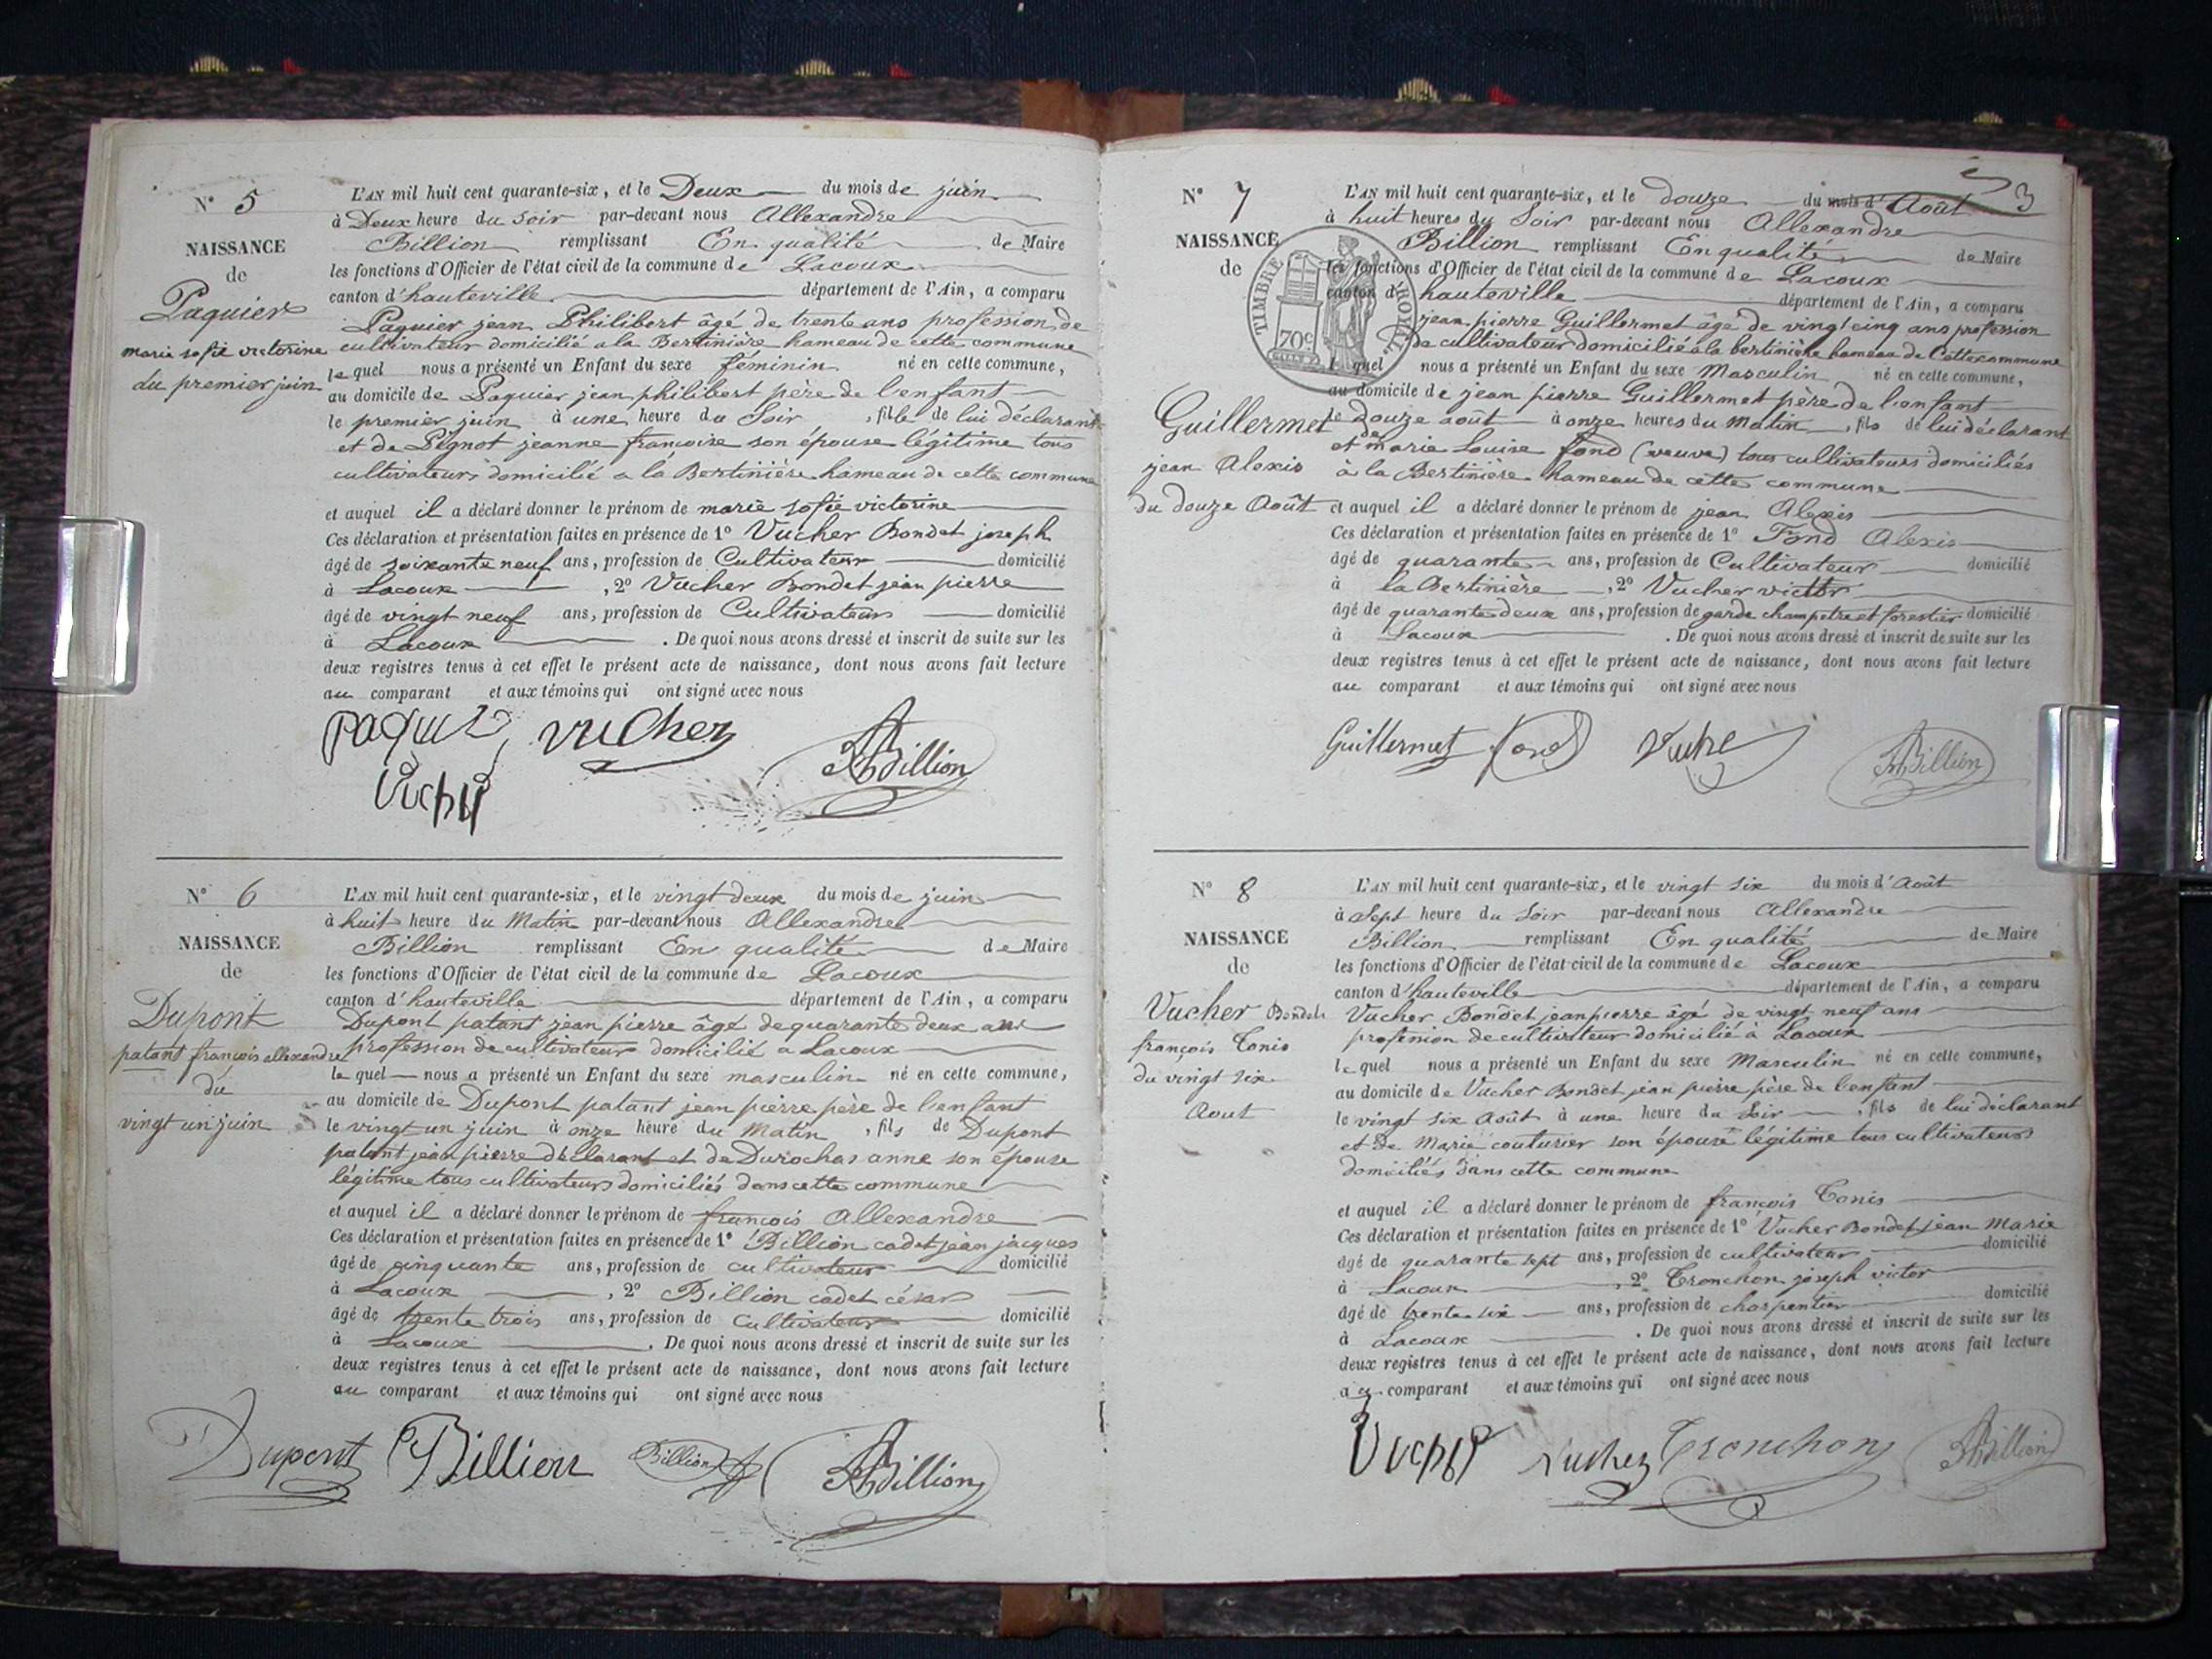 N° 5
NAISSANCE
de
Paquier
marie sofie victorine
du premier juin
L'AN mil huit cent quarante-six, et le Deux du mois de juin
à Deux heure du soir par-devant nous Allexandre
Billion remplissant En qualité de Maire
les fonctions d'Officier de l'état civil de la commune de Lacoux
canton d'hauteville département de l'Ain, a comparu
Paquier jean Philibert âgé de trente ans profession de
cultivateur domicilié a la Bertinière hameau de cette commune
le quel nous a présenté un Enfant du sexe féminin né en cette commune,
au domicile de Paquier jean philibert père de l'enfant
le premier juin à une heure du Soir , fille de lui déclarant
et de Pignot jeanne françoise son épouse légitime tous
cultivateurs domicilié a la Bertinière hameau de cette commune
et auquel il a déclaré donner le prénom de marie sofie victorine
Ces déclaration et présentation faites en présence de 1° Vucher Bondet joseph
âgé de soixante neuf ans, profession de Cultivateur domicilié
à Lacoux , 2° Vucher Bondet jean pierre
âgé de vingt neuf ans, profession de Cultivateur domicilié
à Lacoux . De quoi nous avons dressé et inscrit de suite sur les
deux registres tenus à cet effet le présent acte de naissance, dont nous avons fait lecture
au comparant et aux témoins qui ont signé avec nous
Vucher
ABillion
N° 6
NAISSANCE
de
Dupont
patant françois allexandre
du
vingt un juin
L'AN mil huit cent quarante-six, et le vingt deux du mois de juin
à huit heure du Matin par-devant nous Allexandre
Billion remplissant En qualité de Maire
les fonctions d'Officier de l'état civil de la commune de Lacoux
canton d'hauteville département de l'Ain, a comparu
Dupont patant jean pierre âgé de quarante deux ans
profession de cultivateur domicilié a Lacoux
le quel nous a présenté un Enfant du sexe masculin né en cette commune,
au domicile de Dupont patant jean pierre père de l'enfant
le vingt un juin à onze heure du Matin , fils de Dupont
patant jean pierre déclarant et de Durochas anne son épouse
légitime tous cultivateurs domiciliés dans cette commune
et auquel il a déclaré donner le prénom de françois Allexandre
Ces déclaration et présentation faites en présence de 1° Billion cadet jean jacques
âgé de cinquante ans, profession de cultivateur domicilié
à Lacoux , 2° Billion cadet césar
âgé de trente trois ans, profession de Cultivateur domicilié
à Lacoux . De quoi nous avons dressé et inscrit de suite sur les
deux registres tenus à cet effet le présent acte de naissance, dont nous avons fait lecture
au comparant et aux témoins qui ont signé avec nous
Dupont Billion Billion ABillion
3
N° 7
NAISSANCE
de
Guillermet
jean Alexis
du douze Août
TIMBRE ROYAL
70c
L'AN mil huit cent quarante-six, et le douze du mois d'Août
à huit heures du Soir par-devant nous Allexandre
Billion remplissant En qualité de Maire
les fonctions d'Officier de l'état civil de la commune de Lacoux
canton d' hauteville département de l'Ain, a comparu
jean pierre Guillermet âgé de vingt cinq ans profession
de cultivateur domicilié à la bertinière hameau de Cette commune
le quel nous a présenté un Enfant du sexe Masculin né en cette commune,
au domicile de jean pierre Guillermet père de l'enfant
le douze août à onze heures du Matin , fils de lui déclarant
et de marie Louise fond (veuve) tous cultivateurs domiciliés
à la Bertinière hameau de cette commune
et auquel il a déclaré donner le prénom de jean Alexis
Ces déclaration et présentation faites en présence de 1° Fond Alexis
âgé de quarante ans, profession de Cultivateur domicilié
à la Bertinière , 2° Vucher victor
âgé de quarante deux ans, profession de garde champetre et forestier domicilié
à Lacoux . De quoi nous avons dressé et inscrit de suite sur les
deux registres tenus à cet effet le présent acte de naissance, dont nous avons fait lecture
au comparant et aux témoins qui ont signé avec nous
Guillermet fond ABillion
N° 8
NAISSANCE
de
Vucher Bondet
françois Tonis
du vingt six
Aout
L'AN mil huit cent quarante-six, et le vingt six du mois d'Août
à Sept heure du Soir par-devant nous Allexandre
Billion remplissant En qualité de Maire
les fonctions d'Officier de l'état civil de la commune de Lacoux
canton d'hauteville département de l'Ain, a comparu
Vucher Bondet jean pierre âgé de vingt neuf ans
profession de cultivateur domicilié à Lacoux
le quel nous a présenté un Enfant du sexe Masculin né en cette commune,
au domicile de Vucher Bondet jean pierre père de l'enfant
le vingt six Août à une heure du Soir , fils de lui déclarant
et de Marie couturier son épouse légitime tous cultivateurs
domiciliés dans cette commune
et auquel il a déclaré donner le prénom de françois Tonis
Ces déclaration et présentation faites en présence de 1° Vucher Bondet jean Marie
âgé de quarante sept ans, profession de cultivateur domicilié
à Lacoux , 2° Tronchon joseph victor
âgé de trente six ans, profession de charpentier domicilié
à Lacoux . De quoi nous avons dressé et inscrit de suite sur les
deux registres tenus à cet effet le présent acte de naissance, dont nous avons fait lecture
au comparant et aux témoins qui ont signé avec nous
Vucher Tronchon ABillion